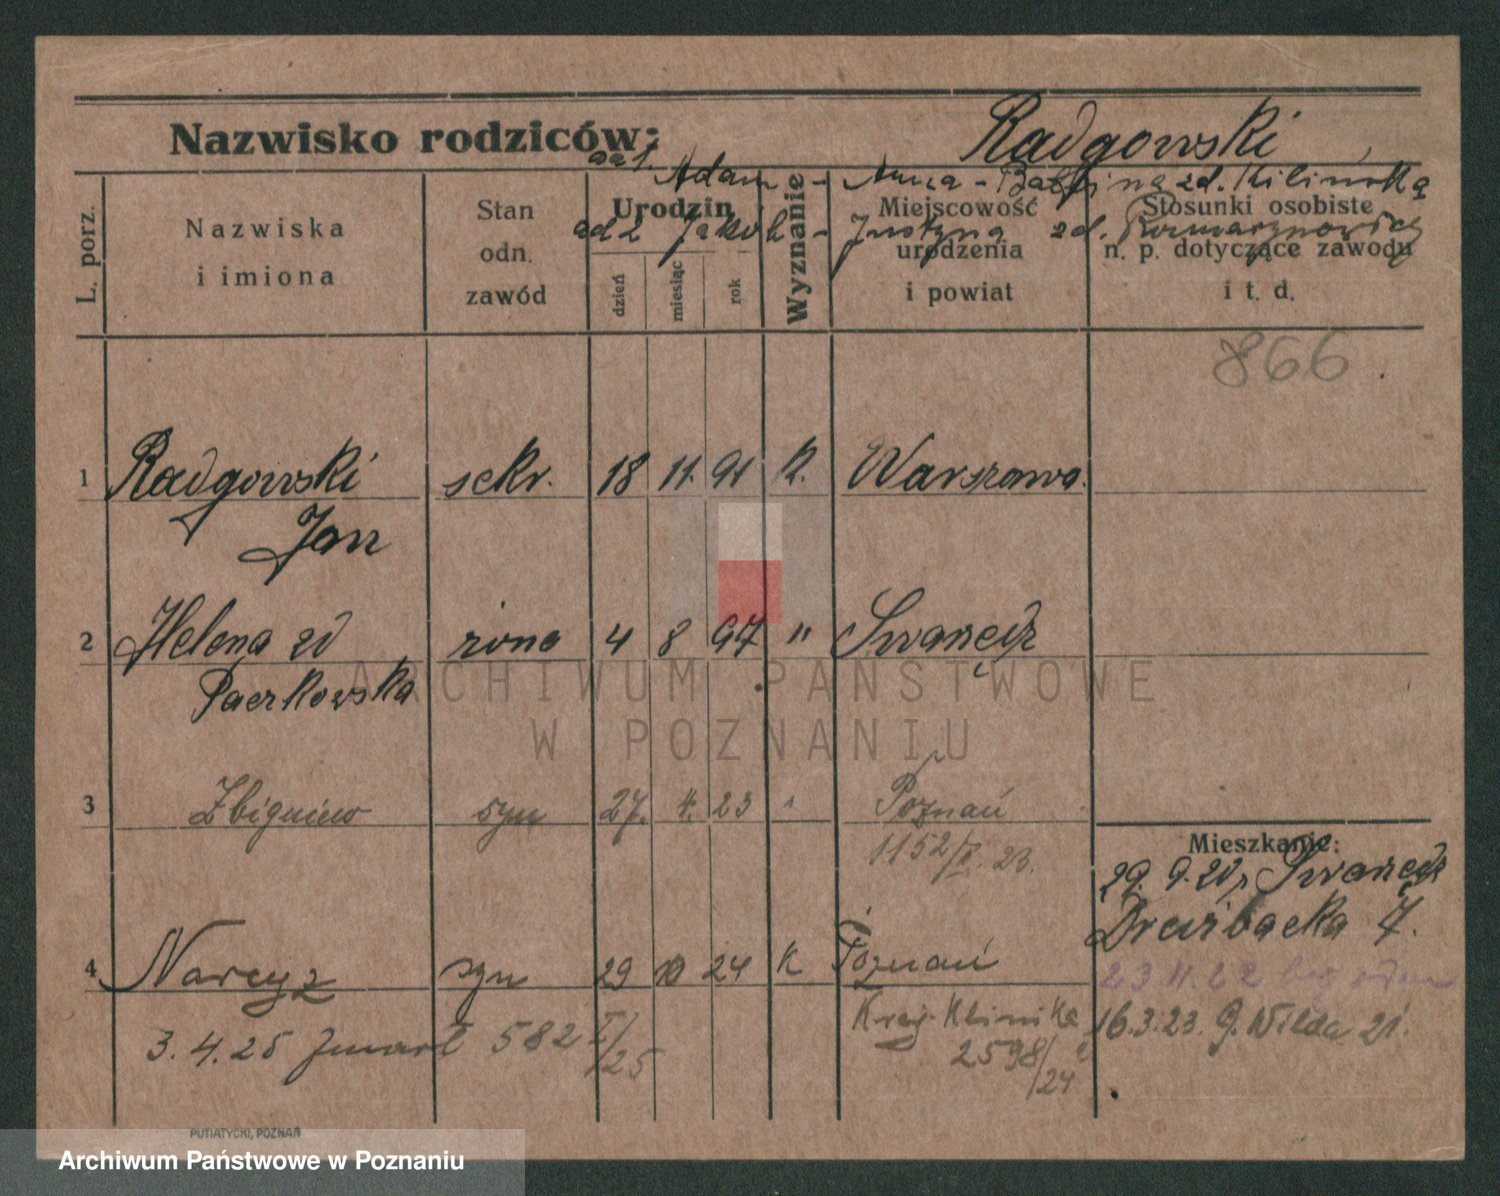 Nazwisko rodziców: Radgowski
ad 1. Adam - Anna - Balbina zd. Kilińska
ad 2 Jakob - Justyna zd.
L. porz.
Nazwiska i imiona
Stan odn. zawód
Urodzin
dzień miesiąc rok
Wyznanie
Miejscowość urodzenia i powiat
Stosunki osobiste n. p. dotyczące zawodu i t. d.
866
1 Radgowski sekr. 18 11. 91 k. Warszawa.
Jan
2 Helena zd żona 4 8 97 " Swarzędz
Paczkowska
3 Zbigniew syn 27. 4. 23 " Poznań
1152/II. 23.
Mieszkanie:
29. 9. 20, Swarzędz
Dreibacka 7.
4 Narcyz syn 29 10 24 k Poznań
23 11. 22
Kraj. Klinika
16.3.23. G. Wilda 21.
3. 4. 25 zmarł 582 I/25
2598/24
PUTIATYCKI, POZNAŃ
ARCHIWUM PAŃSTWOWE
W POZNANIU
Archiwum Państwowe w Poznaniu